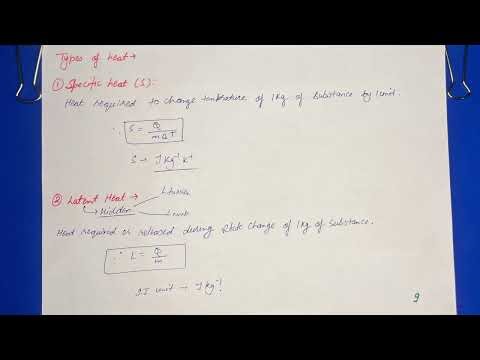 Types of heat→
① Specific heat (S):-
Heat required to change temperature of 1 Kg of substance by 1 unit.
∴ S = Q / mΔT
S → J Kg⁻¹ K⁻¹
② Latent Heat → L fusion
↳ Hidden L vap
Heat required or released during state change of 1 Kg of substance.
∴ L = Q / m
SI unit → J Kg⁻¹
9